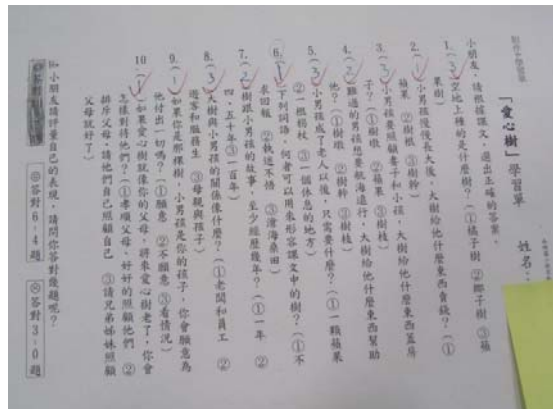 「愛心樹」學習單
姓名:
小朋友,請根據課文,選出正確的答案。
1.(3)空地上種的是什麼樹?(①橘子樹 ②椰子樹 ③蘋
果樹)
2.(1)小男孩慢慢長大後,大樹給他什麼東西賣錢?(①
蘋果 ②樹根 ③樹幹
3.(3)小男孩要照顧妻子和小孩,大樹給他什麼東西蓋房
子?(①樹墩 ②蘋果 ③樹枝)
4.(2)難過的男孩想要航海遠行,大樹給他什麼東西幫助
他?(①樹墩 ②樹幹 ③樹枝)
5.(3)小男孩成了老人以後,只需要什麼?(①一顆蘋果
②一根樹枝 ③一個休息的地方)
6.(1)下列詞語,何者可以用來形容課文中的樹?(①不
求回報 ②執迷不悟 ③滄海桑田)
7.(2)樹跟小男孩的故事,至少經歷幾年?(①一年 ②
四、五十年③一百年)
8.(3)大樹與小男孩的關係像什麼?(①老闆和員工 ②
遊客和服務生 ③母親與孩子)
9.(1)如果你是那棵樹,小男孩是你的孩子,你會願意為
他付出一切嗎?(①願意 ②不願意 ③看情況)
10.(1)如果愛心樹就像你的父母,將來愛心樹老了,你會
怎樣對待他們?(①孝順父母,好好的照顧他們 ②
排斥父母,請他們自己照顧自己 ③請兄弟姊妹照顧
父母就好了)
小朋友請評量自己的表現,請問你答對幾題呢?
答對6-4題
答對3-0題